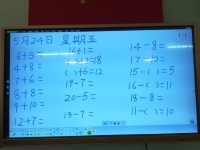 5月24日 星期五
6+5=
4+8=
7+6=
8+8=
9+10=
12+7=
16+1=
=18
( )+6=12
19-7=
20-5=
13-7=
14-8=
17-
15-( )=5
16-( )=11
18-8=
11-( )=10